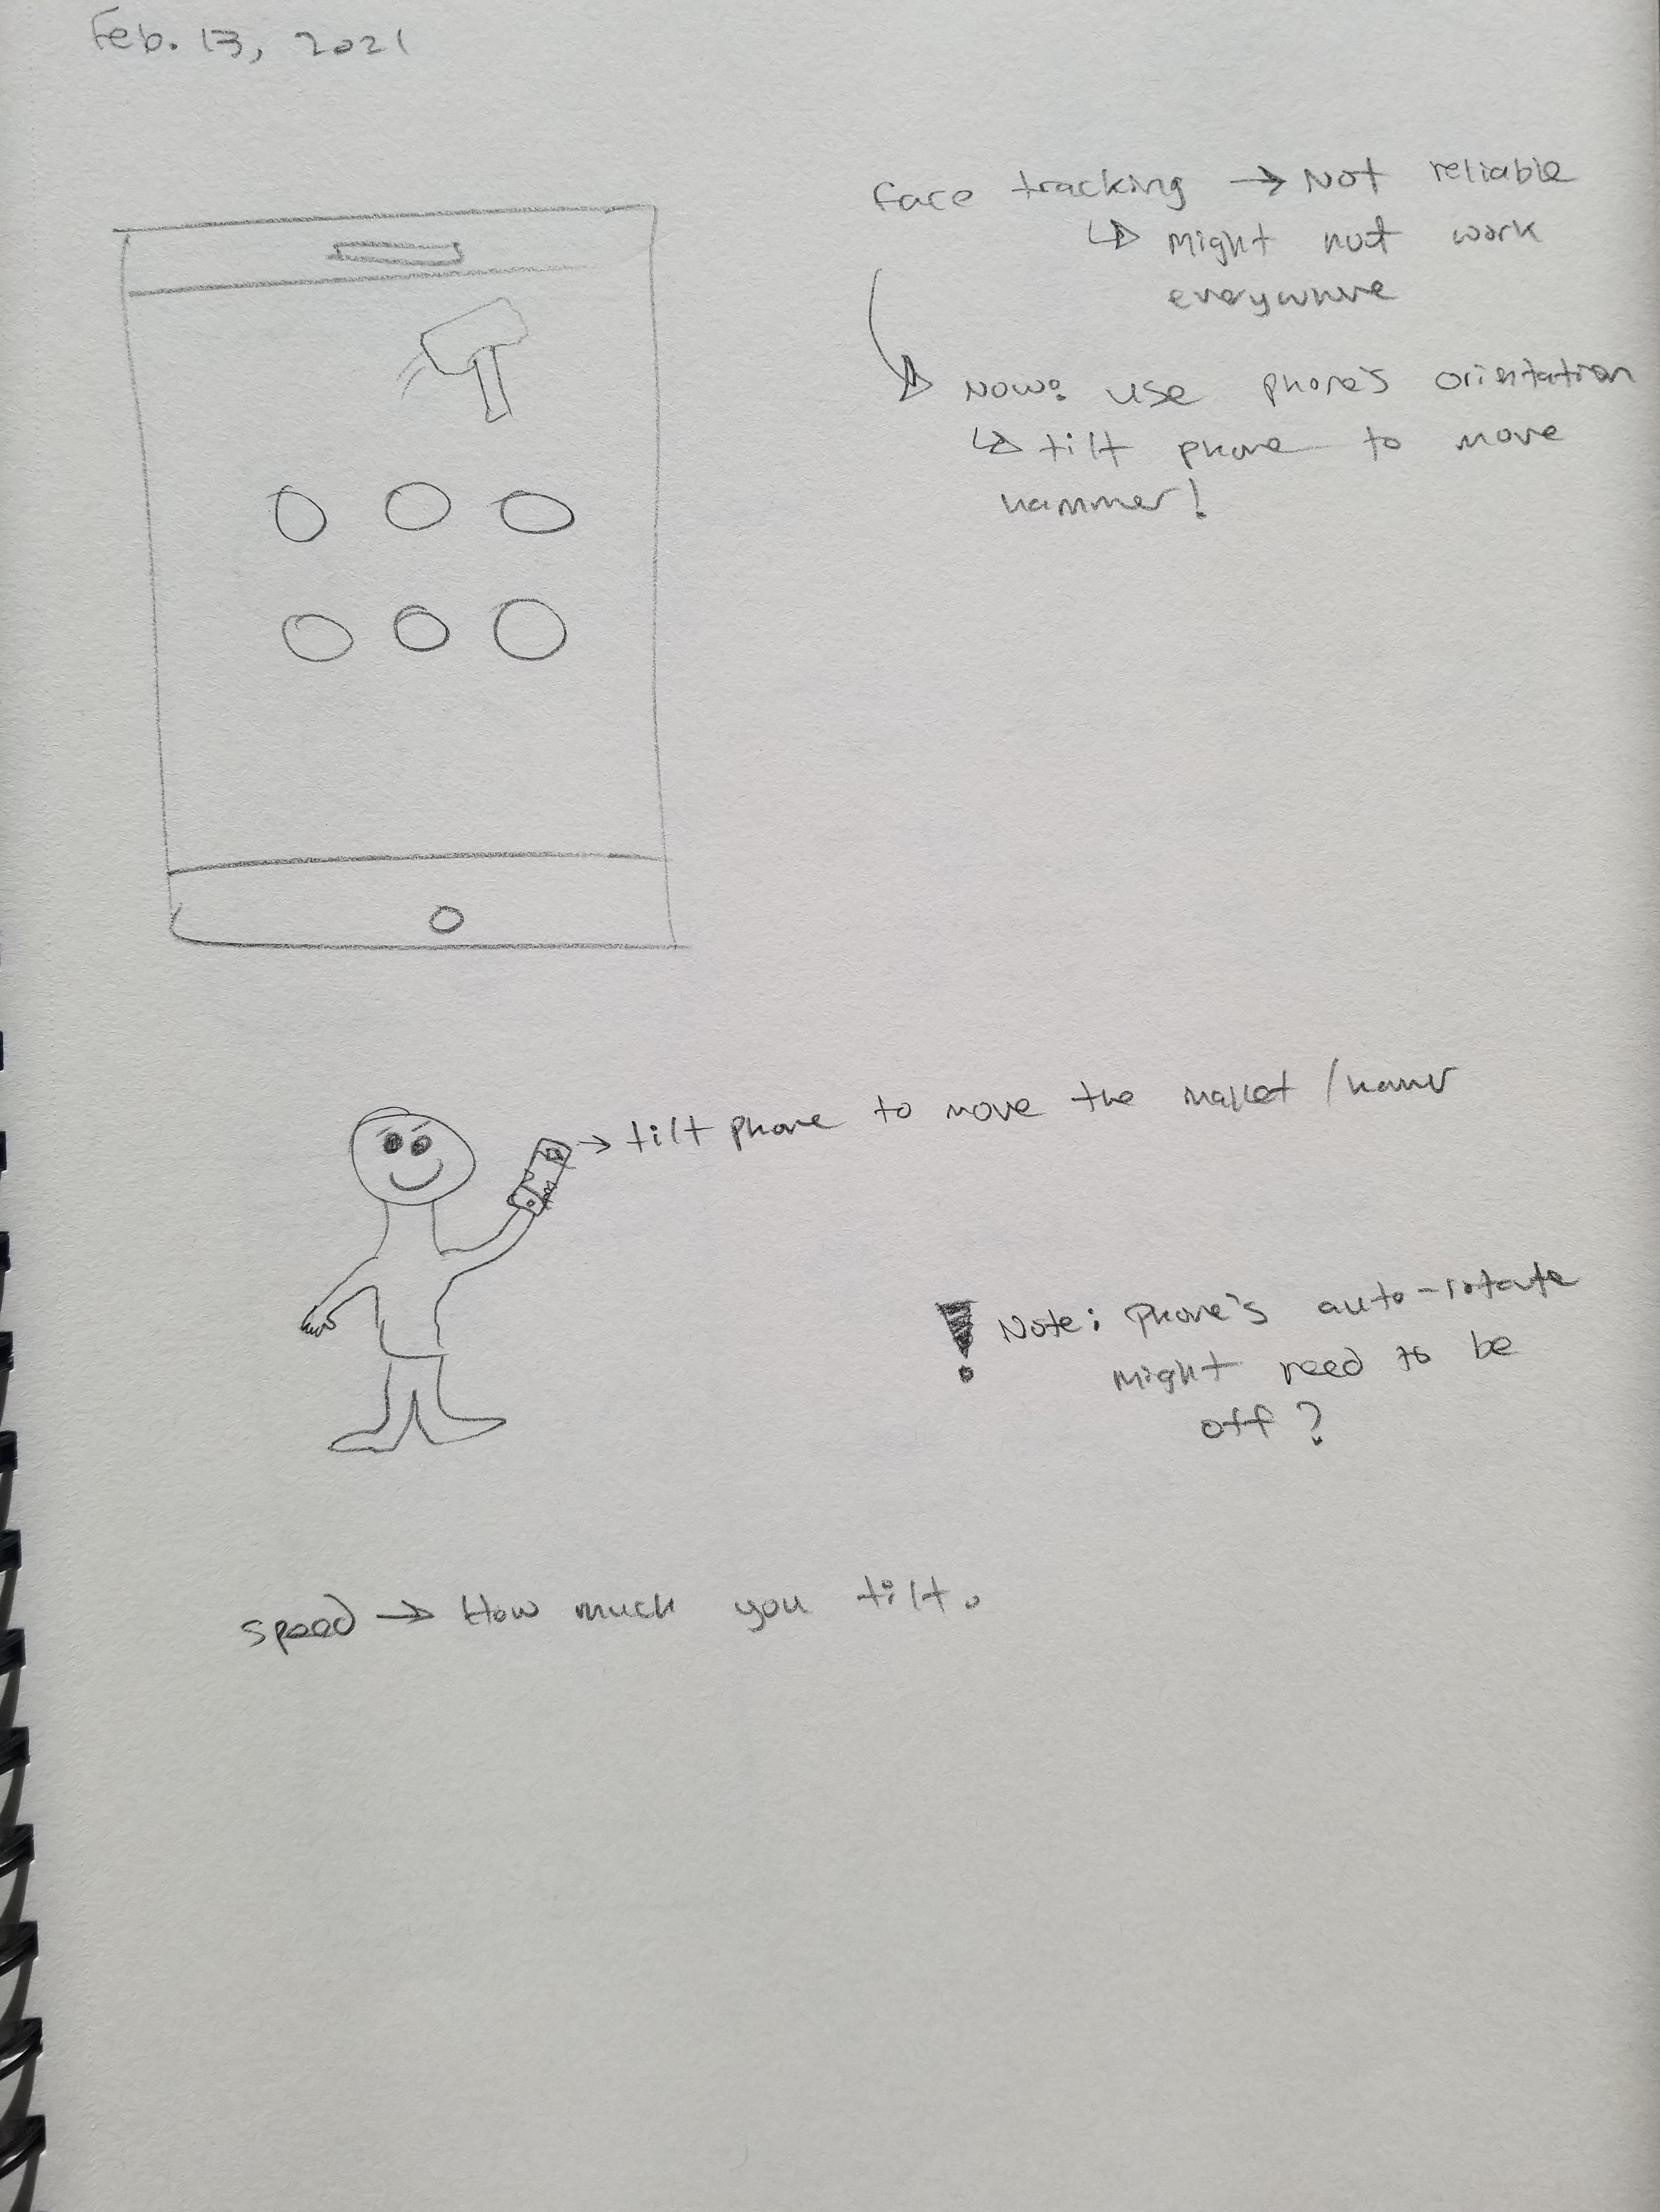 Feb. 13, 2021
face tracking → Not reliable
↳ Might not work
everywhere
↳ Now: use phone's orientation
↳ tilt phone to move
hammer!
→ tilt phone to move the mallet / hamr
! Note: Phone's auto-rotate
might need to be
off?
speed → How much you tilt.